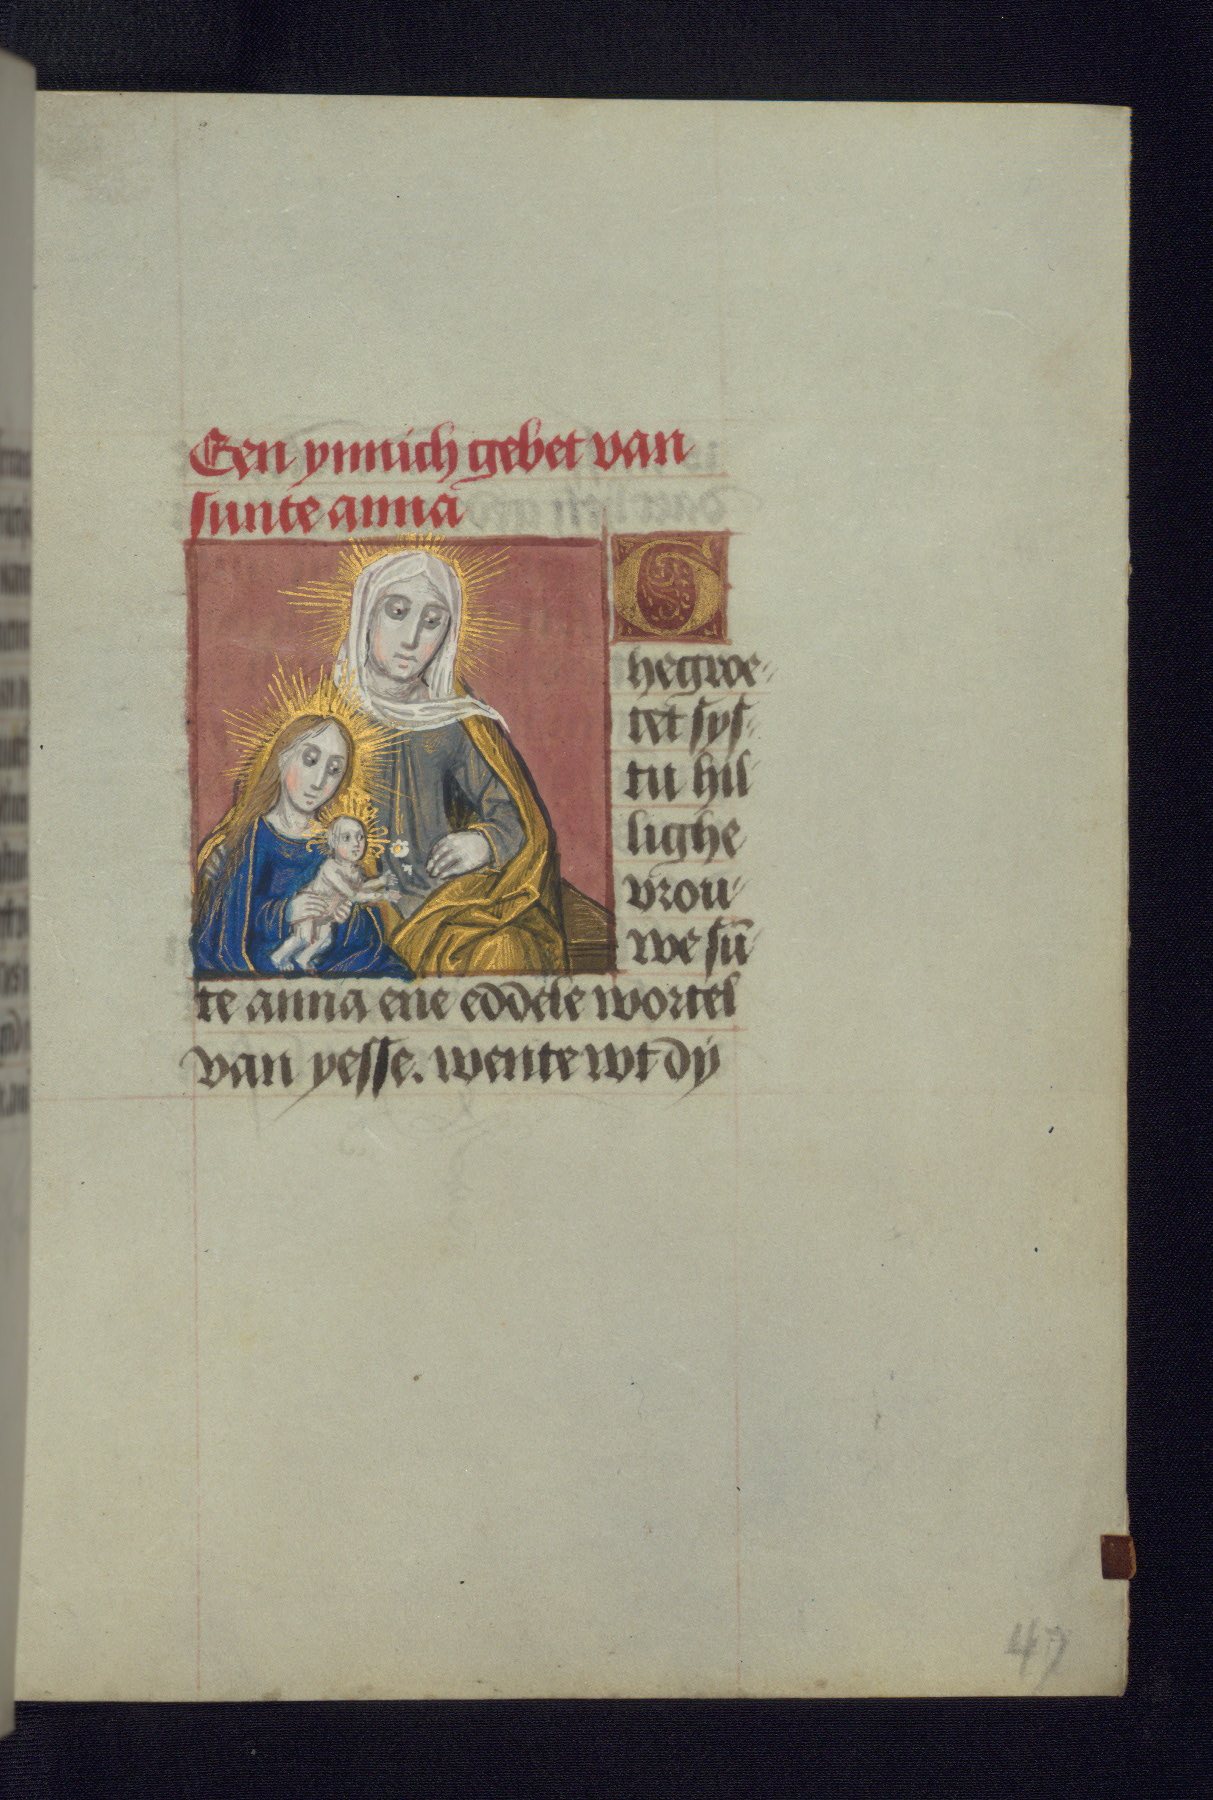 Een ynnich gebet van
sunte anna
G
hegroe-
tet sys-
tu hil
lighe
vrou-
we sūn
te anna ene eddele wortel
van yesse. wente wt dy
47